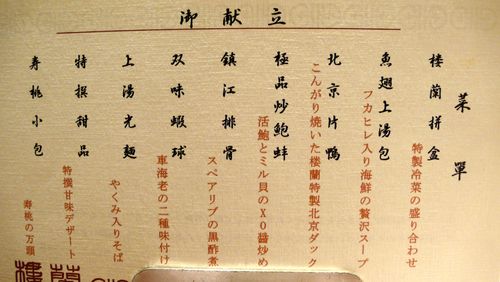 御献立
菜單
樓蘭拼盆
特製冷菜の盛り合わせ
魚翅上湯包
フカヒレ入り海鮮の贅沢スープ
北京片鴨
こんがり焼いた楼蘭特製北京ダック
極品炒鮑蚌
活鮑とミル貝のXO醤炒め
鎮江排骨
スペアリブの黒酢煮
双味蝦球
車海老の二種味付け
上湯光麺
やくみ入りそば
特撰甜品
特撰甘味デザート
寿桃小包
寿桃の万頭
樓蘭